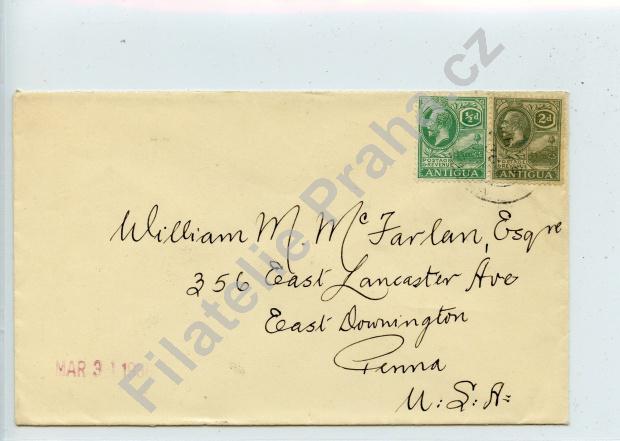 ½d
2d
POSTAGE
& REVENUE
ANTIGUA
POSTAGE
& REVENUE
ANTIGUA
William M. McFarlan, Esqre
356 East Lancaster Ave
East Downington
Penna
U.S.A.
MAR 31
Filatelie Praha.cz